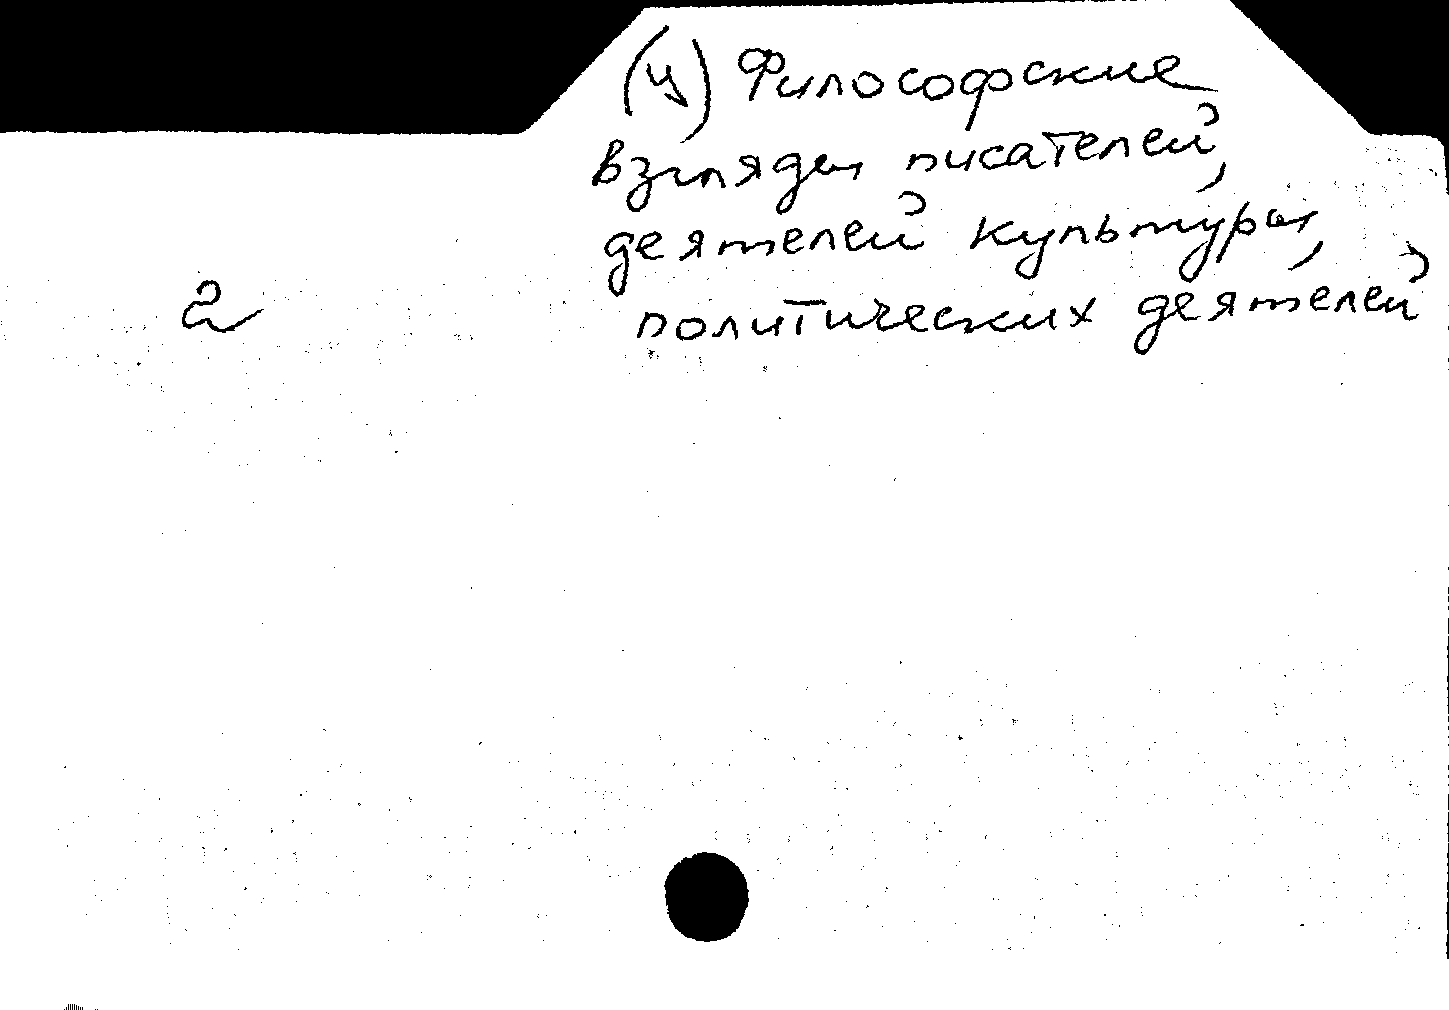 (ц) Философские
взгляды писателей,
деятелей культуры,
2
политических деятелей